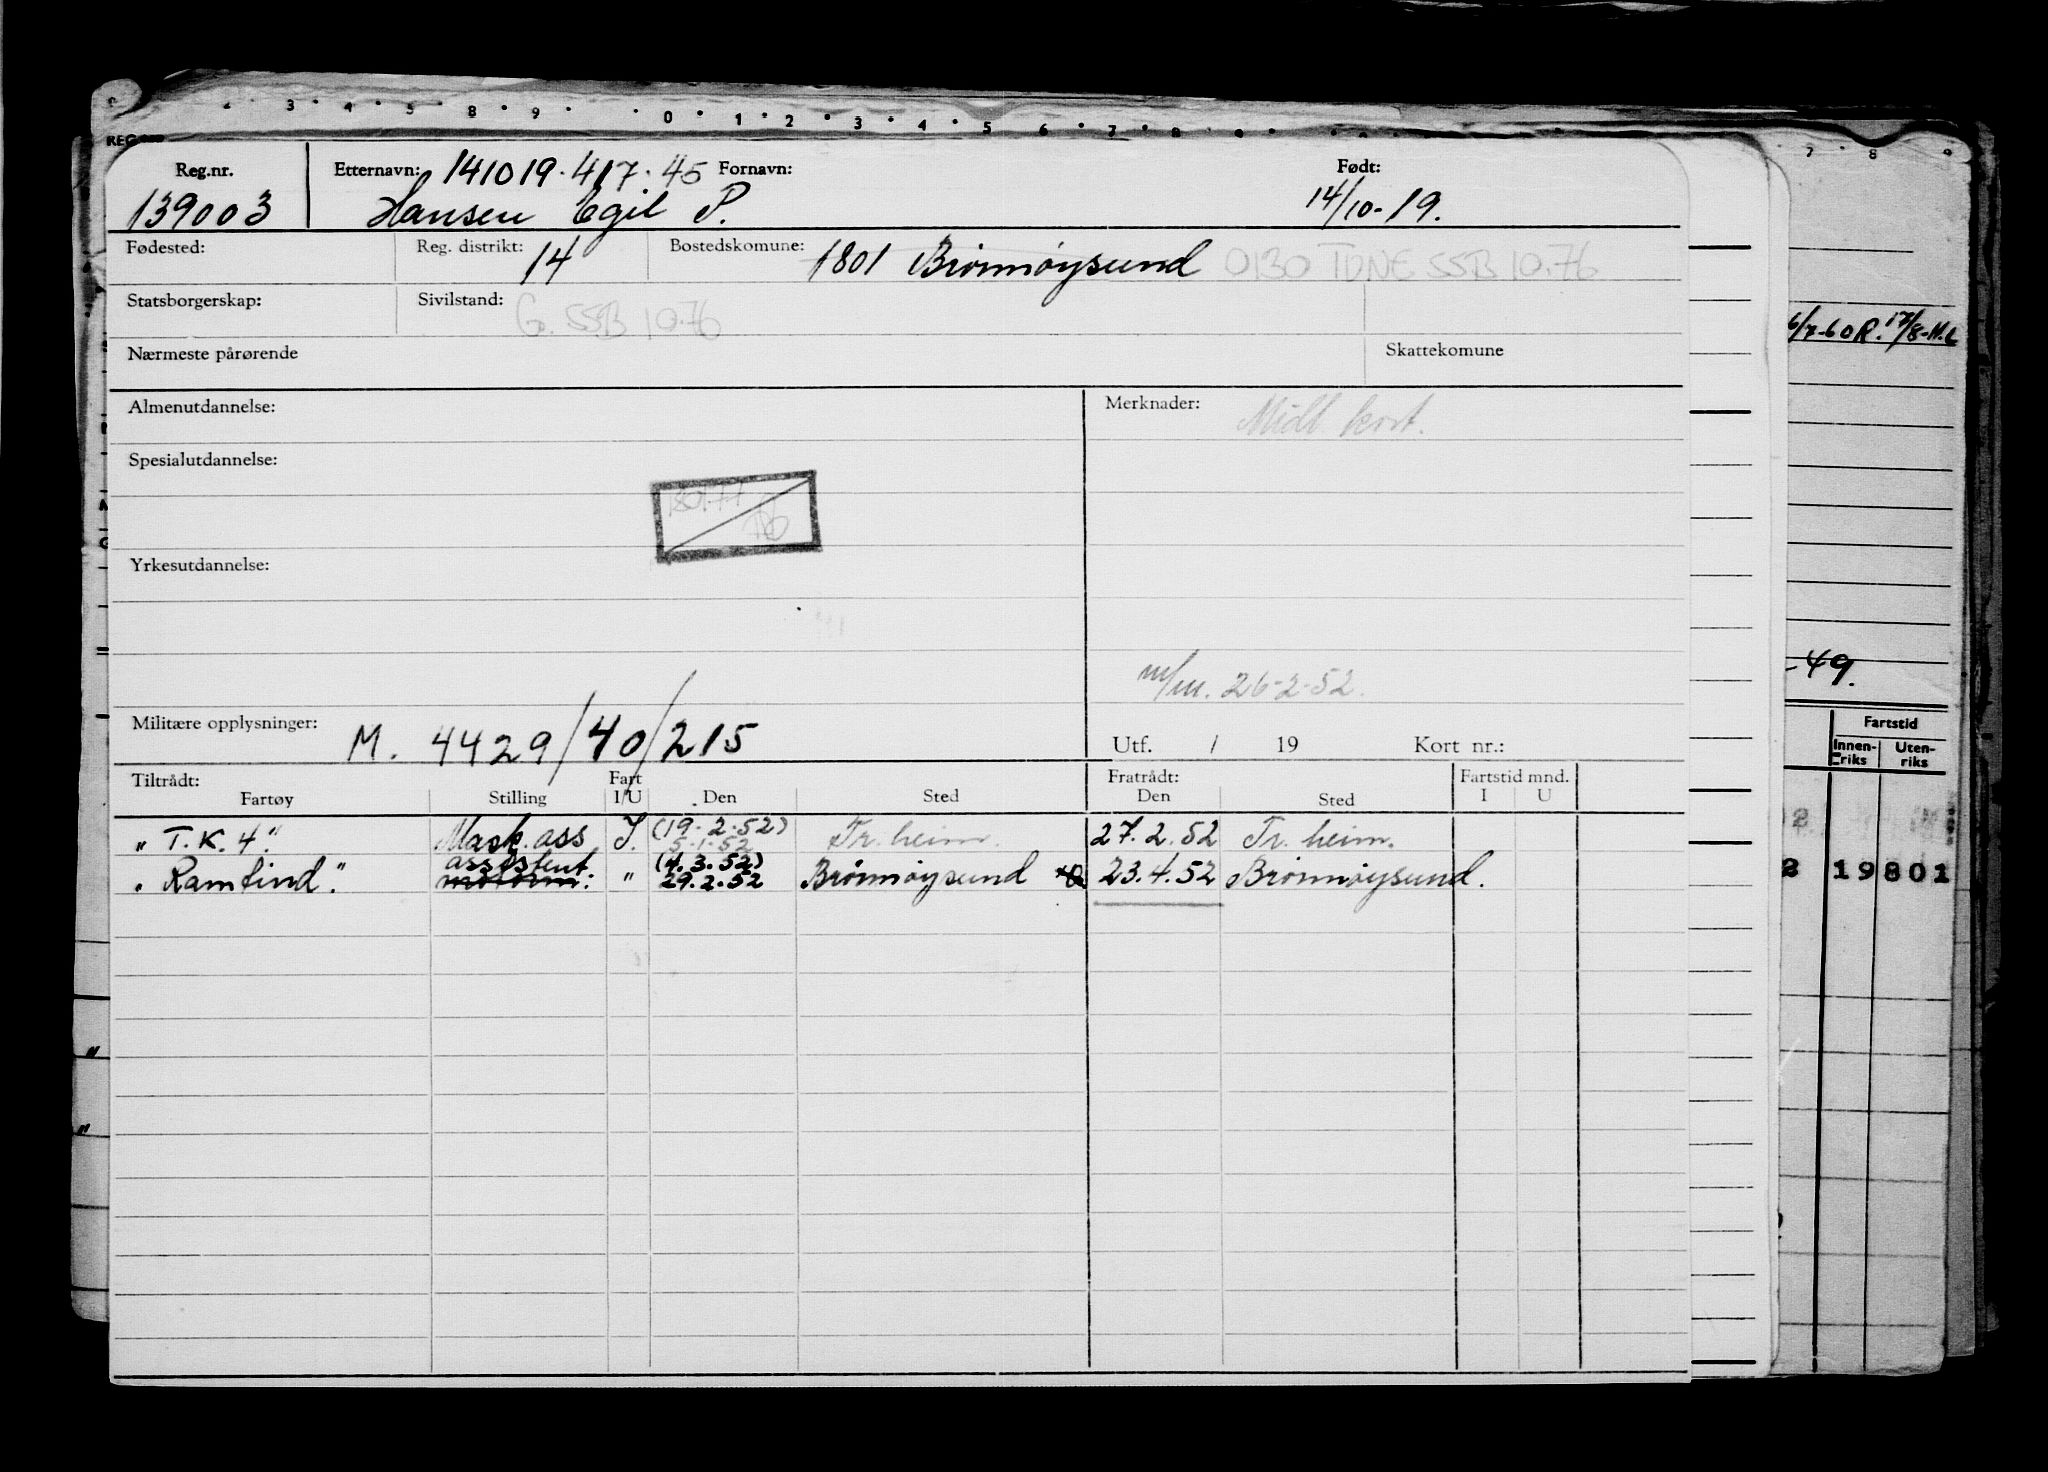 REG
2 3 4 5 8 9 0 1 2 3 4 5 6 7 8 9
7 8 9
Reg.nr. Etternavn: 141019.417.45 Fornavn: Født:
139003 Hansen Egil P. 14/10-19.
Fødested: Reg. distrikt: 14 Bostedskomune: 1801 Brønnøysund 0130 TDNE SSB 10.76
Statsborgerskap: Sivilstand: G. SSB 10.76
Nærmeste pårørende Skattekomune
Almenutdannelse: Merknader: Midl. kort.
Spesialutdannelse:
Yrkesutdannelse:
26-2-52.
Militære opplysninger: M. 4429/40/215 Utf. / 19 Kort nr.:
Tiltrådt: Fart Fratrådt: Fartstid mnd.
Fartøy Stilling I/U Den Sted Den Sted I U
(19.2.52)
"T.K.4." Mask.ass I. 5.1.52 Tr.heim. 27.2.52 Tr. heim.
assistent (4.3.52)
"Ramfind". motorm: " 29.2.52 Brønnøysund 23.4.52 Brønnøysund.
6/7-60R. 17/8-
-49.
Fartstid
Innen-riks Uten-riks
2 19801